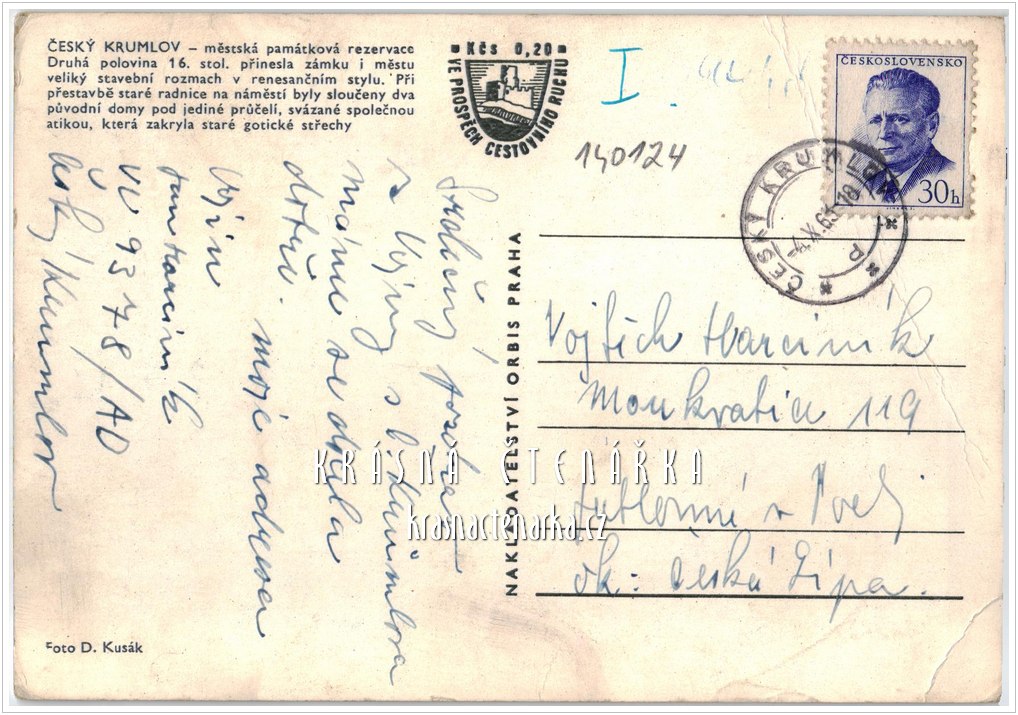 ČESKÝ KRUMLOV – městská památková rezervace
Druhá polovina 16. stol. přinesla zámku i městu
veliký stavební rozmach v renesančním stylu. Při
přestavbě staré radnice na náměstí byly sloučeny dva
původní domy pod jediné průčelí, svázané společnou
atikou, která zakryla staré gotické střechy
Kčs 0,20
VE PROSPĚCH CESTOVNÍHO RUCHU
I.
140124
ČESKOSLOVENSKO
30h
ČESKÝ KRUMLOV 1
Srdečný pozdrav
z Vojny s Č. Krumlova
máme se docela
dobře.
moje adresa
Vojín
Jan Harciník
VÚ 9378/AD
Český Krumlov
NAKLADATELSTVÍ ORBIS PRAHA
Vojtěch Harciník
119
Jablonné v Podj
ok: Česká Lípa.
KRÁSNÁ ČTENÁŘKA
krasnactenarka.cz
Foto D. Kusák